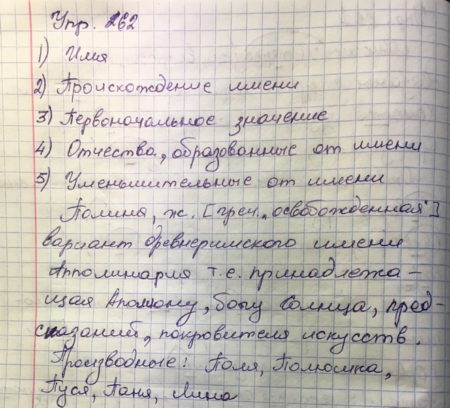 Упр. 262
1) Имя
2) Происхождение имени
3) Первоначальное значение
4) Отчества, образованные от имени
5) Уменьшительные от имени
Полина, ж. [греч. „освобожденная"]
вариант древнеримского имени
Апполинария т.е. принадлежа-
щая Аполлону, богу Солнца, пред-
сказаний, покровителя искусств.
Производные: Поля, Полюшка,
Пуся, Паня, Лина